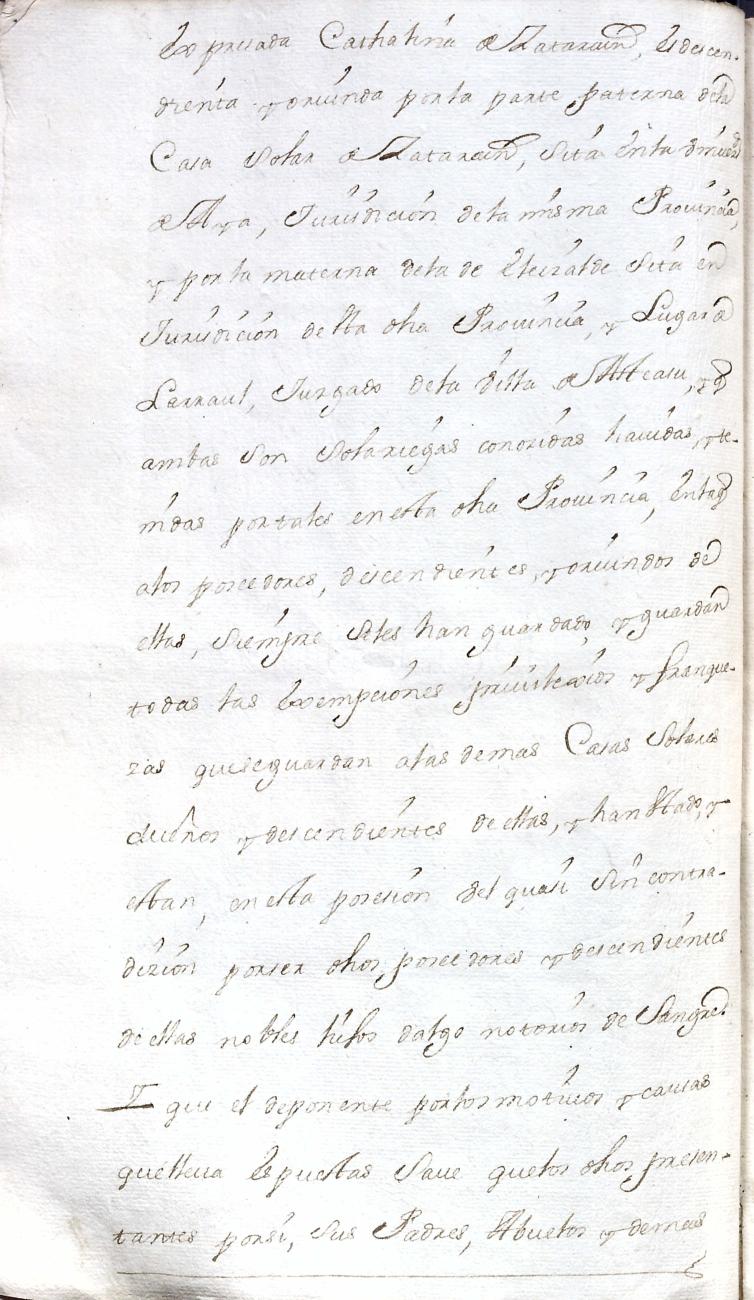 Expresada Cathalina de Zatarain, es descen-
dienta y oriunda por la parte paterna dela
Casa Solar de Zatarain, sita en la
de Aya, Jurisdicion de la misma Provincia,
y por la materna de la de Eleizalde sita en
Jurisdicion de esta dha Provincia, y Lugar de
Larraul, Jurgado de la Villa de Asteasu, y q
ambas son Solariegas conocidas havidas, y te-
nidas por tales en esta dha Provincia,
a los poseedores, descendientes, y oriundos de
ellas, siempre seles han guardado, y guardan
todas las Exempciones privilexios y franque-
zas que se guardan a las demas Casas Solares
dueños y descendientes de ellas, y han estado, y
estan, en esta posesion del quasi sin contra-
dizion por ser dhos poseedores y descendientes
de ellas nobles hijos dalgo notorios de Sangre.
Y que el deponente por los motivos y causas
que lleva Espuestas Save que los dhos presen-
tantes por si, sus Padres, Abuelos y demas